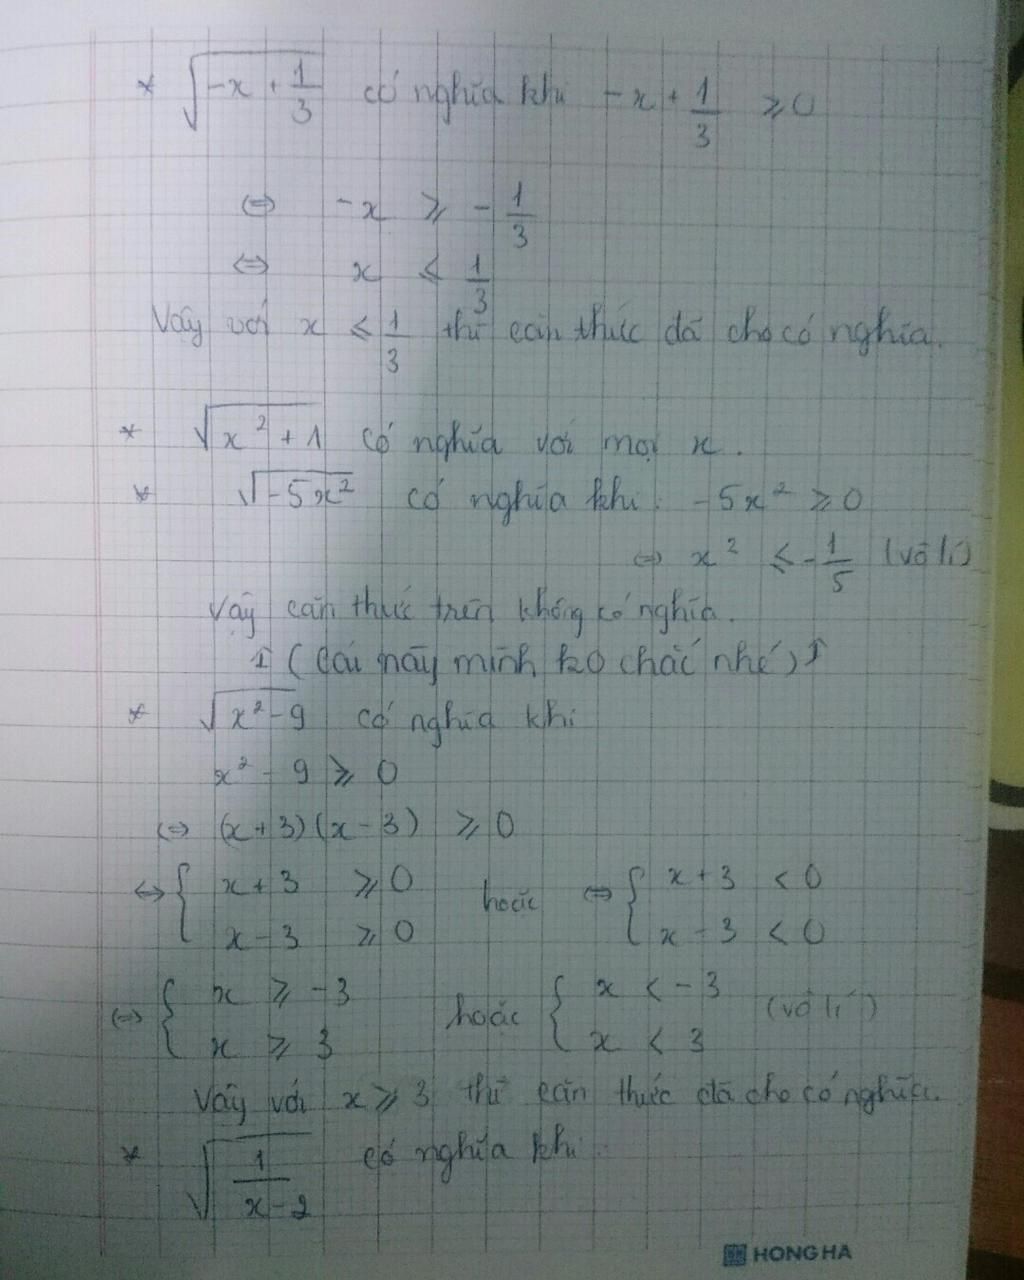 * √(-x + 1/3) có nghĩa khi -x + 1/3 ≥ 0
⇔ -x ≥ -1/3
⇔ x ≤ 1/3
Vậy với x ≤ 1/3 thì căn thức đã cho có nghĩa.
* √(x² + 1) có nghĩa với mọi x.
* √(-5x²) có nghĩa khi: -5x² ≥ 0
⇔ x² ≤ -1/5 (vô lí)
Vậy căn thức trên không có nghĩa.
(Cái này mình ko chắc nhé)
* √(x² - 9) có nghĩa khi
x² - 9 ≥ 0
⇔ (x + 3)(x - 3) ≥ 0
⇔ { x + 3 ≥ 0 hoặc ⇔ { x + 3 < 0
x - 3 ≥ 0 x - 3 < 0
⇔ { x ≥ -3 hoặc { x < -3 (vô lí)
x ≥ 3 x < 3
Vậy với x ≥ 3 thì căn thức đã cho có nghĩa.
* √(1/(x - 2)) có nghĩa khi:
HONG HA